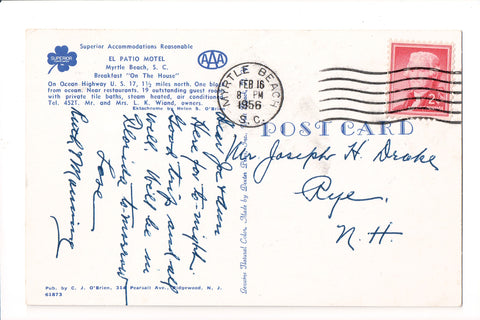 Superior Accommodations Reasonable
EL PATIO MOTEL
Myrtle Beach, S. C.
Breakfast "On The House"
On Ocean Highway U. S. 17, 1½ miles north. One block
from ocean. Near restaurants. 19 outstanding guest rooms
with private tile baths, steam heated, air conditioned.
Tel. 4521. Mr. and Mrs. L. K. Wiand, owners.
Ektachrome by Helen B. O'Brien
SUPERIOR
AAA
MYRTLE BEACH
FEB 16
8 PM
1956
S.C.
2¢
POST CARD
Mr Joseph H. Drake
Rye,
N. H.
Dear Joe &
Here for to-night.
Good trip and all
well. Will be in
Florida to-morrow
Love
Ruth Manning
Pub. by C. J. O'Brien, 314 Pearsall Ave., Ridgewood, N. J.
61873